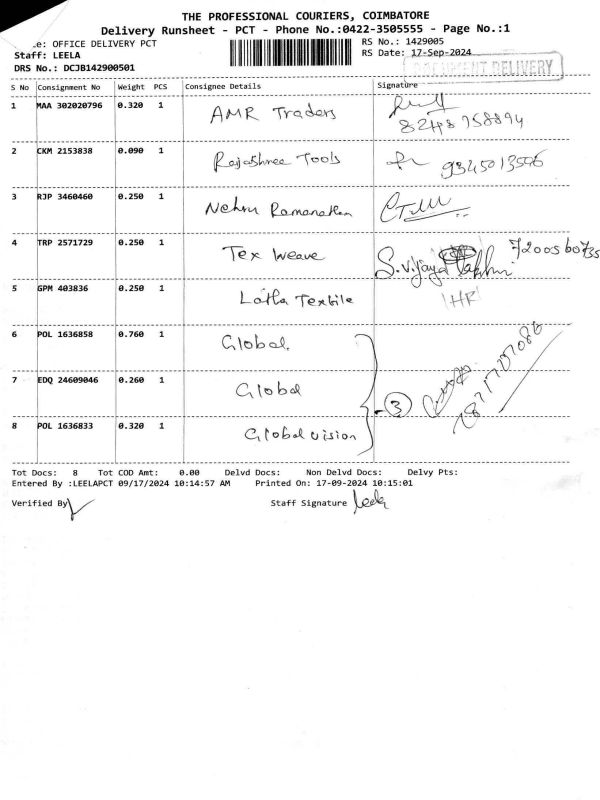 THE PROFESSIONAL COURIERS, COIMBATORE
Delivery Runsheet - PCT - Phone No.:0422-3505555 - Page No.:1
e: OFFICE DELIVERY PCT RS No.: 1429005
Staff: LEELA RS Date: 17-Sep-2024
DRS No.: DCJB142900501 DOCUMENT DELIVERY
S No Consignment No Weight PCS Consignee Details Signature
1 MAA 302020796 0.320 1 AMR Traders
8248758894
2 CKM 2153838 0.090 1 Rajashree Tools 9345013556
3 RJP 3460460 0.250 1 Nehru Ramanathan
4 TRP 2571729 0.250 1 Tex Weave S.Vijaya 7200560735
5 GPM 403836 0.250 1 Latha Textile HR
6 POL 1636858 0.760 1 Global.
7 EDQ 24609046 0.260 1 Global 3
8 POL 1636833 0.320 1 Global vision
Tot Docs: 8 Tot COD Amt: 0.00 Delvd Docs: Non Delvd Docs: Delvy Pts:
Entered By :LEELAPCT 09/17/2024 10:14:57 AM Printed On: 17-09-2024 10:15:01
Verified By Staff Signature Leela